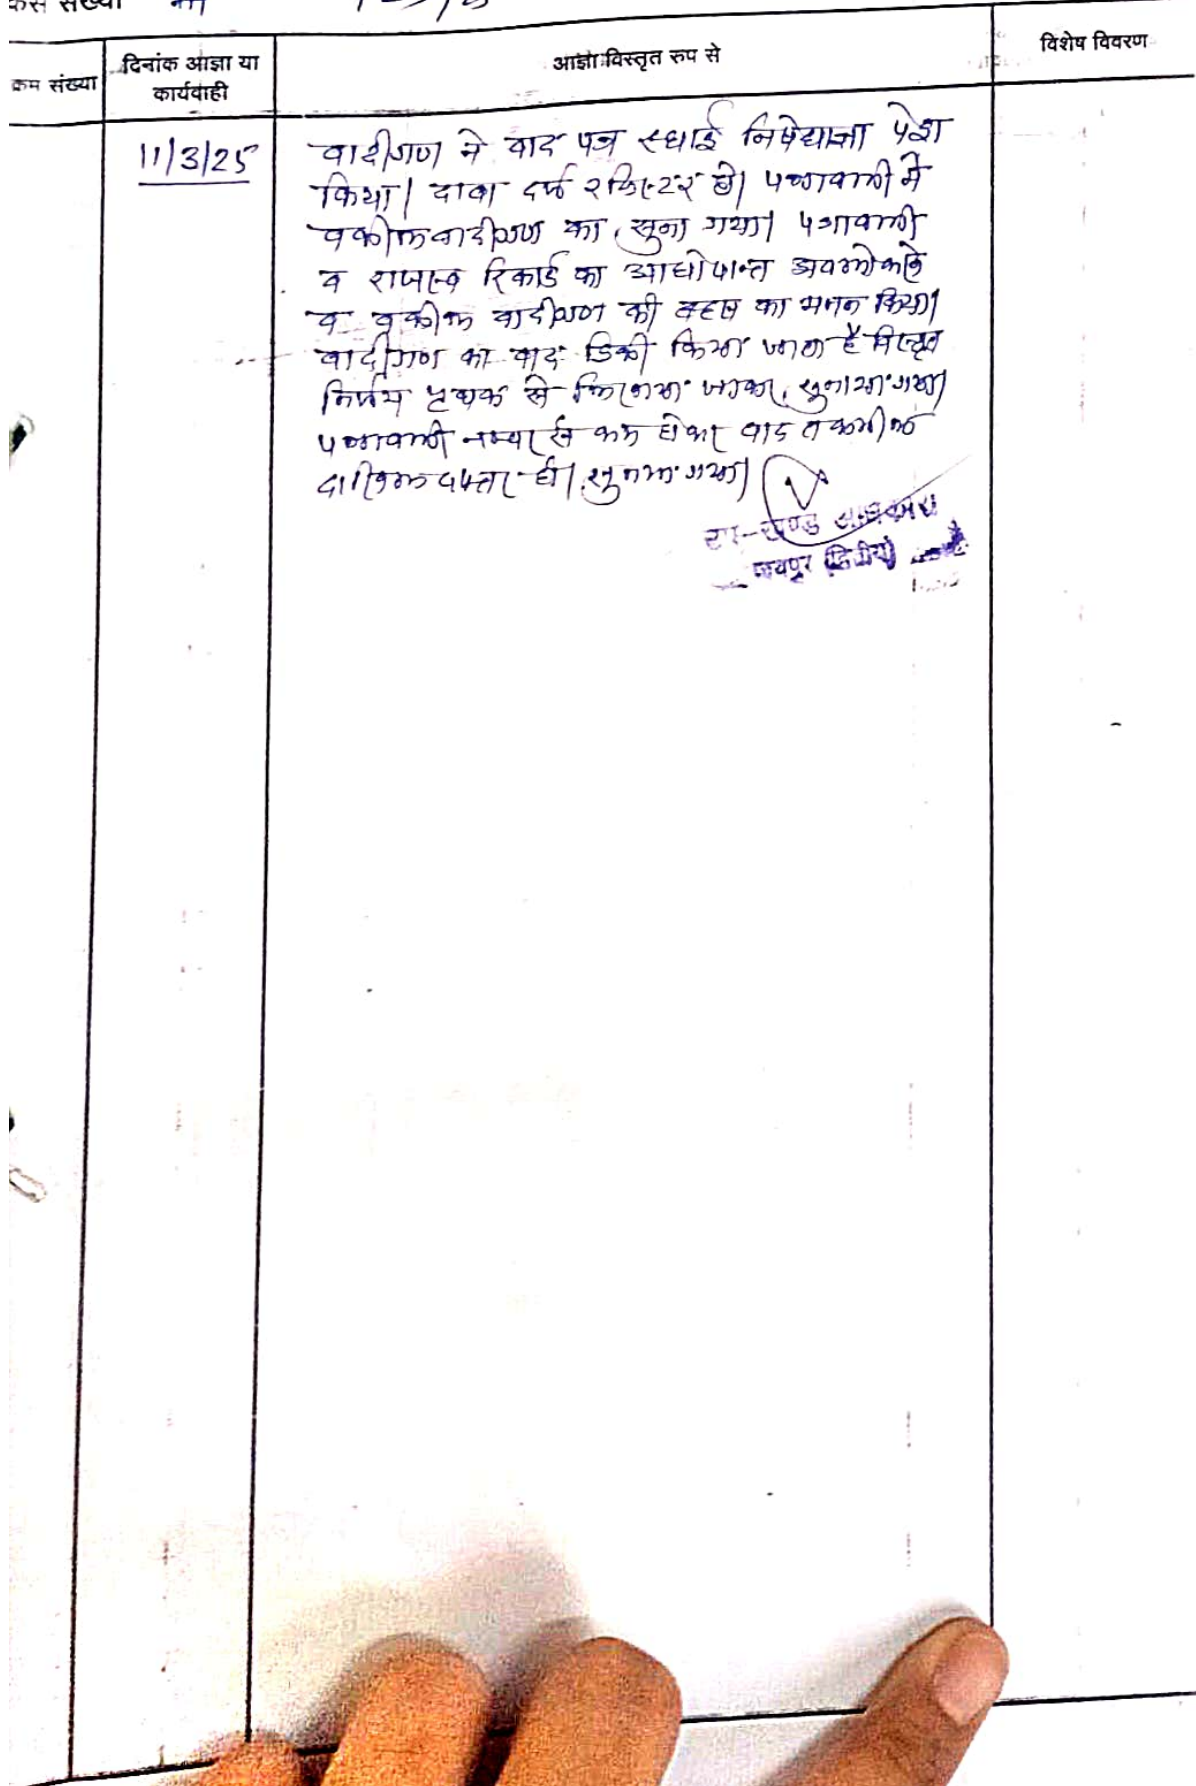 केस संख्या
क्रम संख्या
दिनांक आज्ञा या
कार्यवाही
आज्ञा विस्तृत रुप से
विशेष विवरण
11/3/25
वादीगण ने वाद पत्र स्थाई निषेधाज्ञा पेश
किया। दावा दर्ज रजिस्टर हो। पत्रावली में
वकील वादीगण को सुना गया। पत्रावली
व राजस्व रिकार्ड का आद्योपान्त अवलोकन
व वकील वादीगण की बहस का मनन किया।
वादीगण का वाद डिक्री किया जाता है विस्तृत
निर्णय पृथक से लिखाया जाकर सुनाया गया।
पत्रावली नम्बर से कम होकर बाद तकमील
दाखिल दफ्तर हो। सुनाया गया।
उप-खण्ड अधिकारी
जयपुर (द्वितीय)